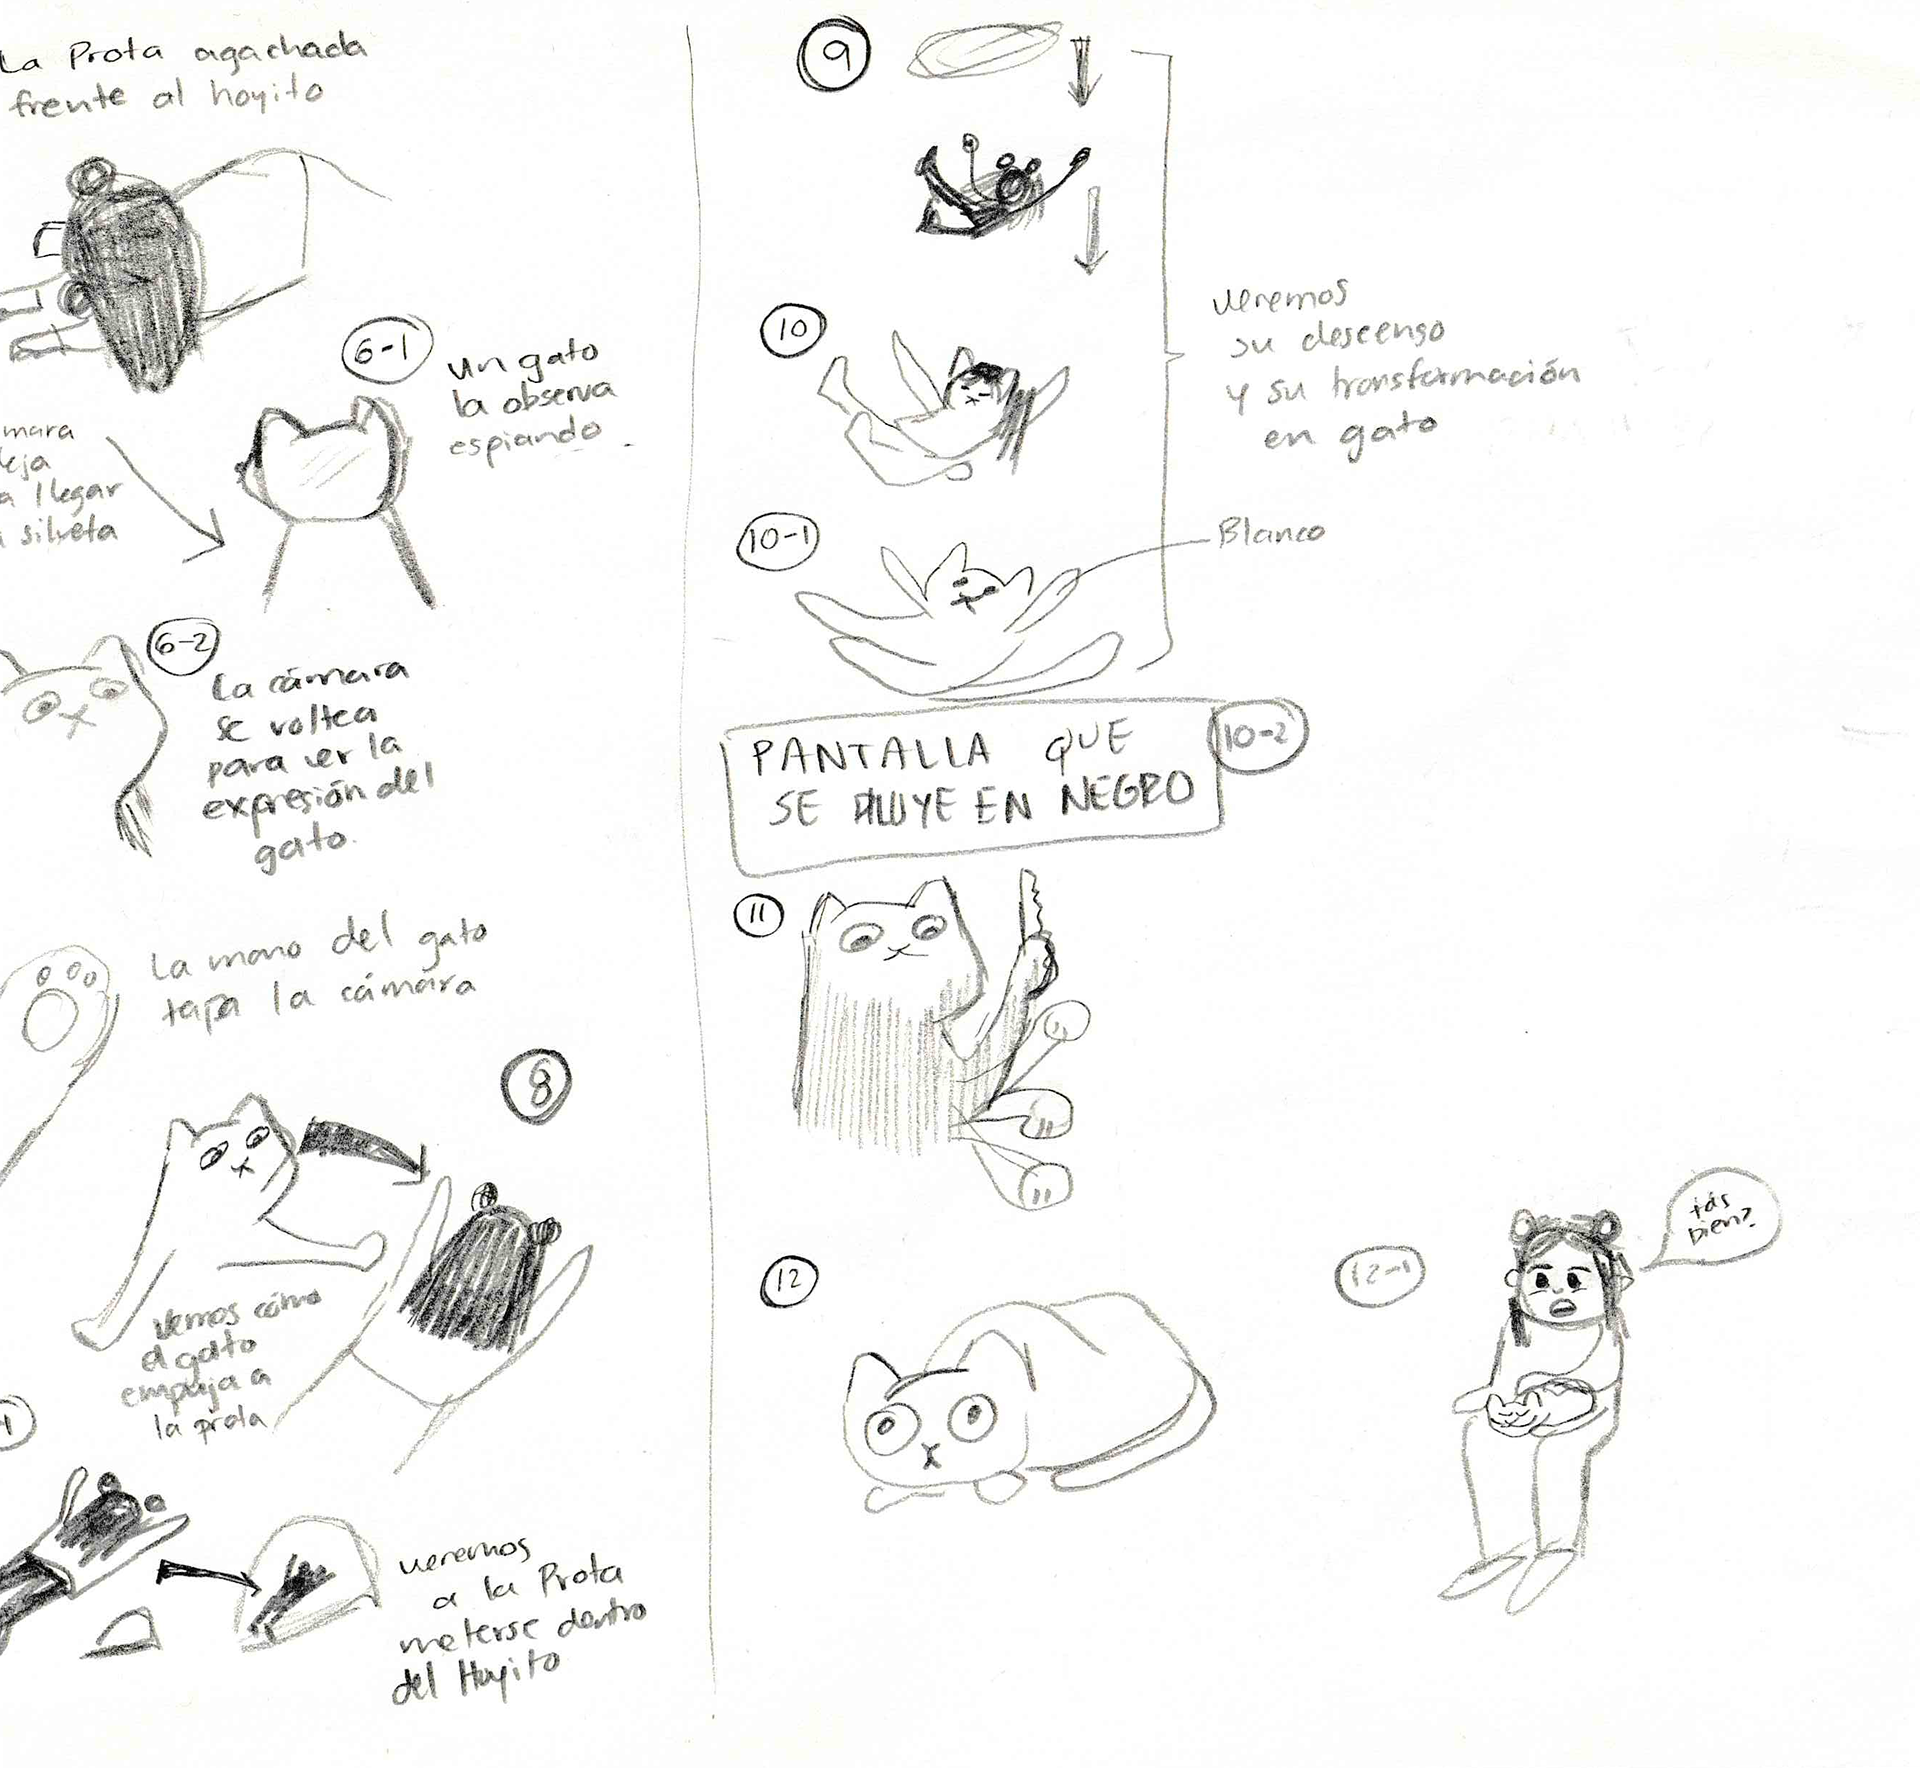 La Prota agachada
frente al hoyito
6-1
un gato
la observa
espiando.
mara
eja
a llegar
silueta
6-2
La cámara
se voltea
para ver la
expresión del
gato.
La mano del gato
tapa la cámara
8
vemos cómo
el gato
empuja a
la prota
1
veremos
a la Prota
meterse dentro
del Hoyito
9
10
veremos
su descenso
y su transformación
en gato
10-1
Blanco
PANTALLA QUE
SE DILUYE EN NEGRO
10-2
11
12
12-1
tás
bien?